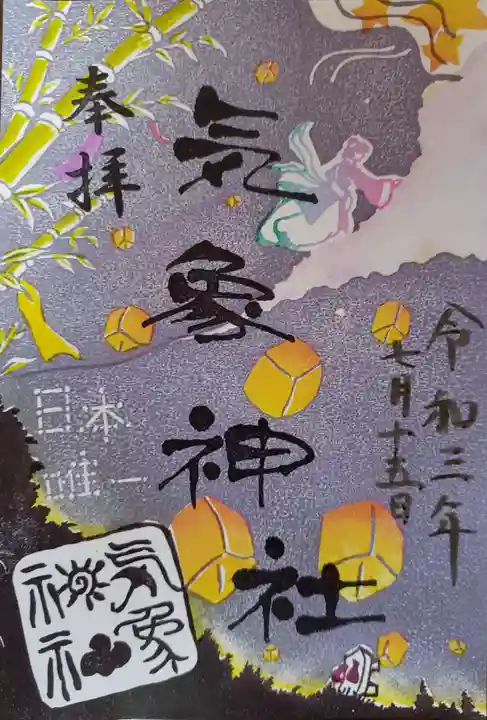 奉拝
気象神社
令和三年
七月十五日
日本
唯一
気象
神社